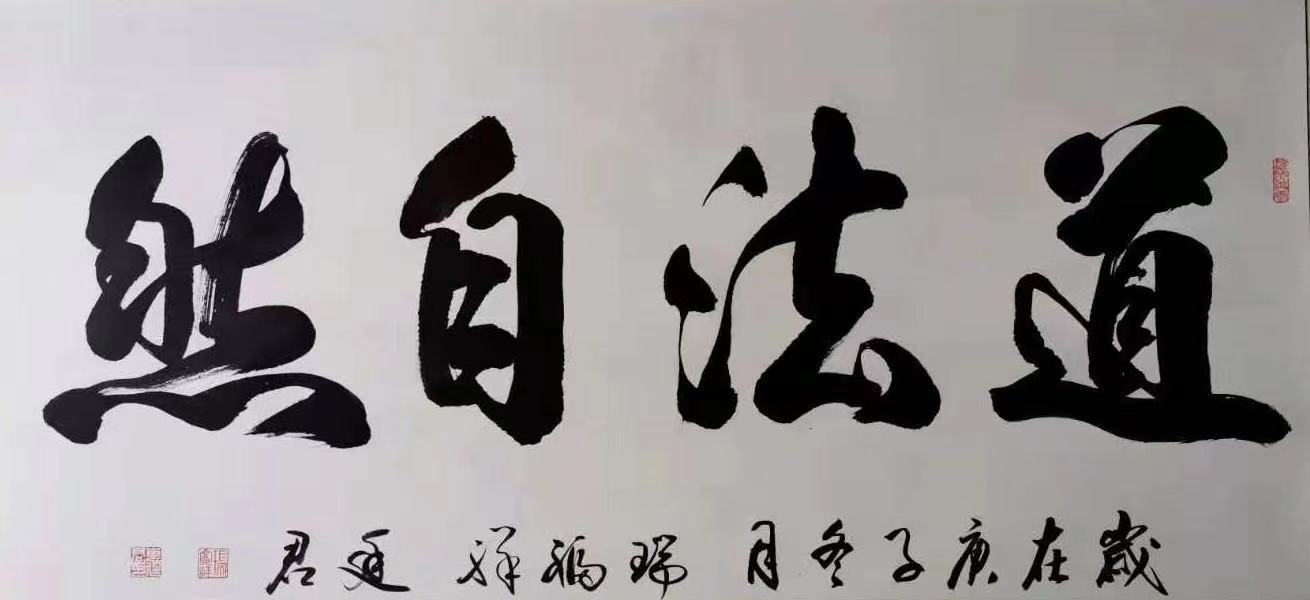 道法自然
歲在庚子冬月 瑞福祥 廷君